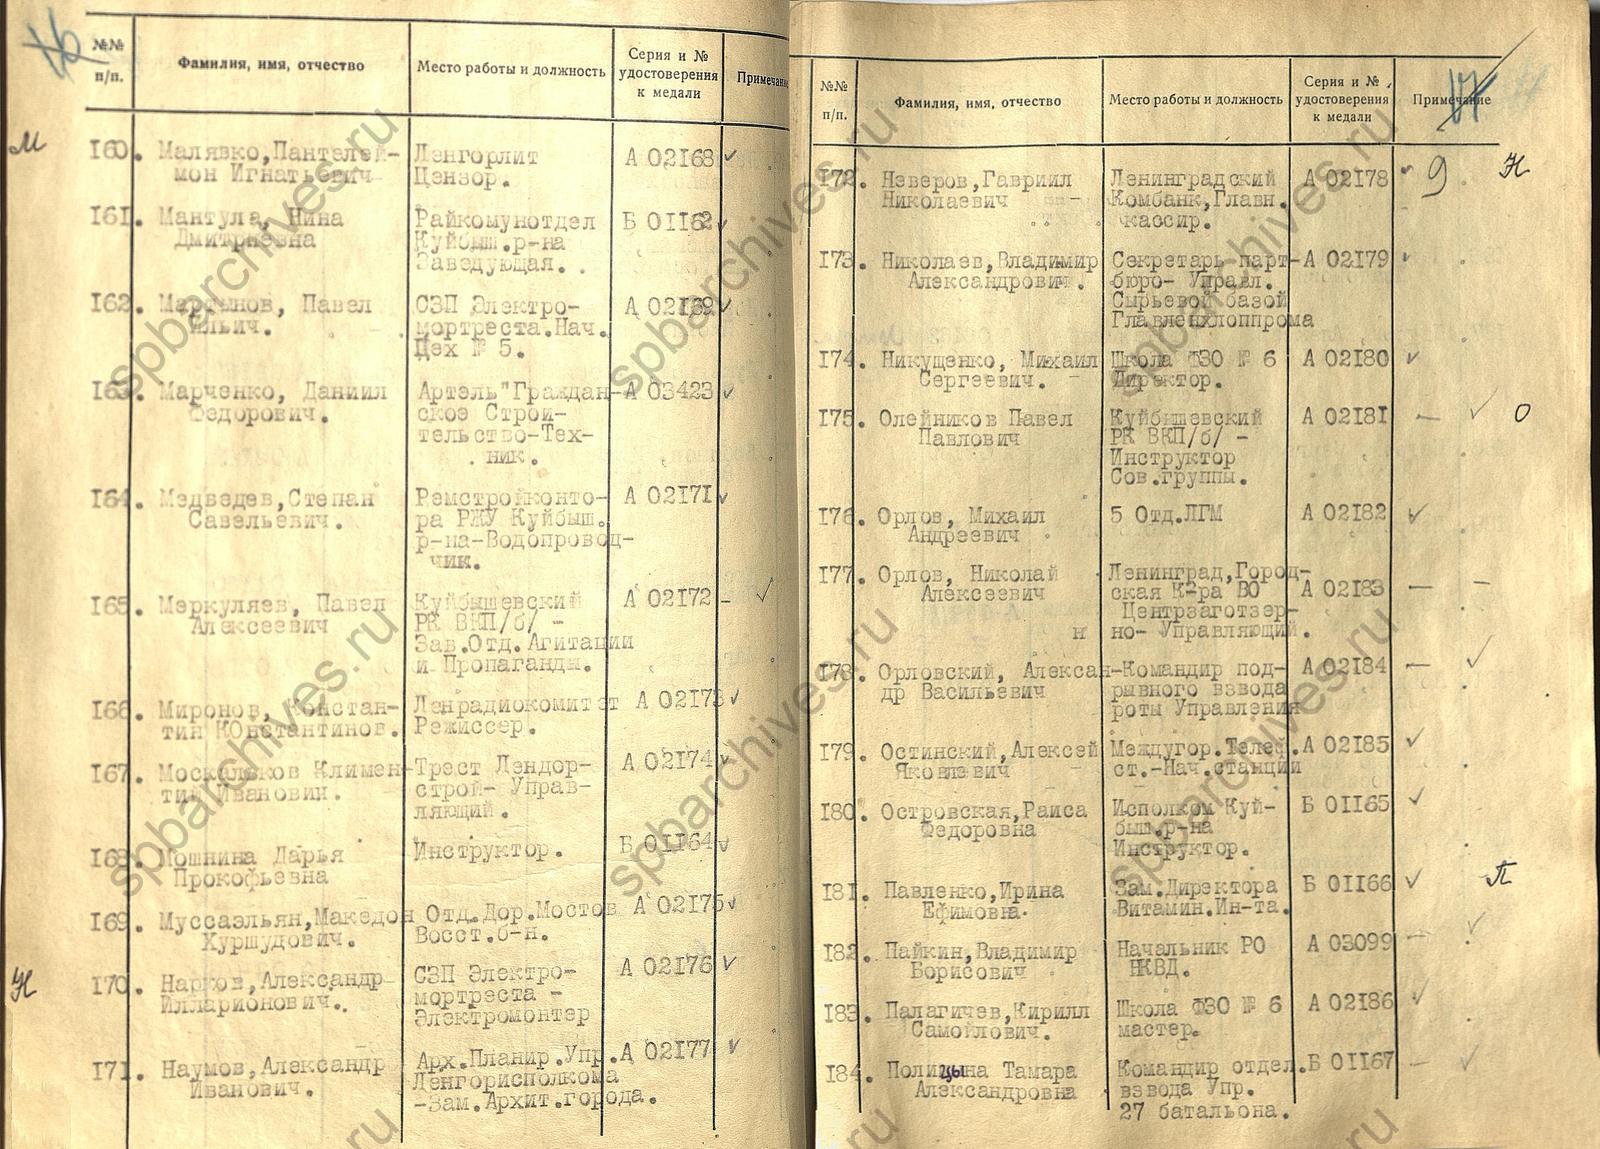 16
№№
п/п.
Фамилия, имя, отчество
Место работы и должность
Серия и №
удостоверения
к медали
Примечание
М
160. Малявко,Пантелей-
мон Игнатьевич
Ленгорлит
Цензор.
А 02168
161. Мантула, Нина
Дмитриевна
Райкомунотдел
Куйбыш.р-на
Заведующая.
Б 01162
162. Мартынов, Павел
Ильич.
СЗП Электро-
мортреста.Нач.
Цех № 5.
А 02169
163. Марченко, Даниил
Федорович.
Артель "Граждан-
ское Строи-
тельство-Тех-
ник.
А 03423
164. Медведев,Степан
Савельевич.
Ремстройконто-
ра РЖУ Куйбыш.
р-на-Водопровод-
чик.
А 02171
165. Меркуляев, Павел
Алексеевич
Куйбышевский
РК ВКП/б/ -
Зав.Отд.Агитации
и Пропаганды.
А 02172
166. Миронов, Констан-
тин КОнстантинов.
Ленрадиокомитет
Режиссер.
А 02173
167. Москальков Климен-
тий Иванович.
Трест Лендор-
строй- Управ-
ляющий.
А 02174
168. Мошнина Дарья
Прокофьевна
Инструктор.
Б 01164
169. Муссаэльян,Македон
Хуршудович.
Отд.Дор.Мостов
Восст.б-н.
А 02175
Н
170. Нарков,Александр
Илларионович..
СЗП Электро-
мортреста -
Электромонтер
А 02176
171. Наумов,Александр
Иванович.
Арх.Планир.Упр.
Ленгорисполкома
-Зам.Архит.города.
А 02177
17
№№
п/п.
Фамилия, имя, отчество
Место работы и должность
Серия и №
удостоверения
к медали
Примечание
172. Неверов,Гавриил
Николаевич
Ленинградский
Комбанк,Главн.
кассир.
А 02178
9
Н
173. Николаев,Владимир
Александрович.
Секретарь парт-
бюро- Управл.
Сырьевой базой
Главленхлоппрома
А 02179
174. Никущенко, Михаил
Сергеевич.
Школа ФЗО № 6
Директор.
А 02180
175. Олейников Павел
Павлович
Куйбышевский
РК ВКП/б/ -
Инструктор
Сов.группы.
А 02181
О
176. Орлов, Михаил
Андреевич
5 Отд.ЛГМ
А 02182
177. Орлов, Николай
Алексеевич
Ленинград,Город-
ская К-ра ВО
Центрзаготзер-
но- Управляющий.
А 02183
н
178. Орловский, Алексан-
др Васильевич
Командир под-
рывного взвода
роты Управления
А 02184
179. Остинский,Алексей
Яковлевич
Междугор.Телеф.
ст.-Нач.станции
А 02185
180. Островская,Раиса
Федоровна
Исполком Куй-
быш.р-на
Инструктор.
Б 01165
181. Павленко,Ирина
Ефимовна.
Зам.Директора
Витамин.Ин-та.
Б 01166
П
182. Пайкин,Владимир
Борисович
Начальник РО
НКВД.
А 03099
183. Палагичев,Кирилл
Самойлович.
Школа ФЗО № 6
мастер.
А 02186
184. Полицына Тамара
Александровна
Командир отдел.
взвода Упр.
27 батальона.
Б 01167
spbarchives.ru
spbarchives.ru
spbarchives.ru
spbarchives.ru
spbarchives.ru
spbarchives.ru